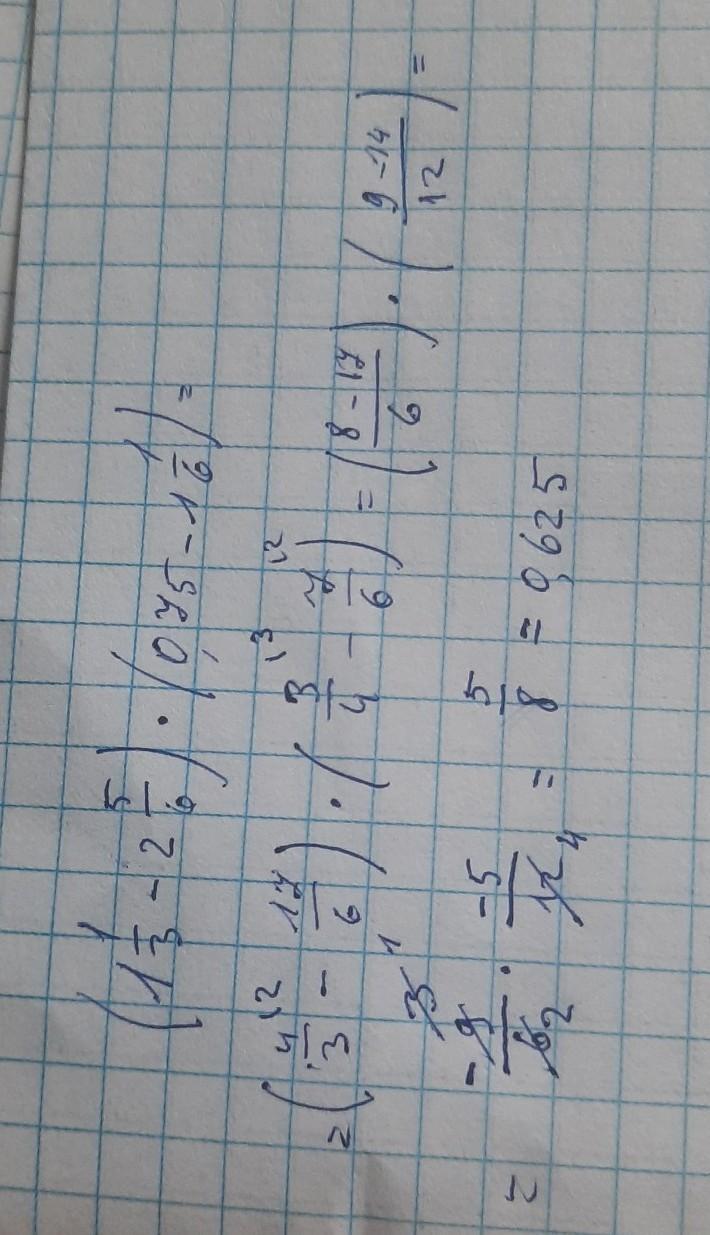 (1 1/3 - 2 5/6) · (0,75 - 1 1/6) =
= (4/3 \2 - 17/6) · (3/4 \3 - 7/6 \2) = (8-17/6) · (9-14/12) =
= -9 3/6 2 · -5/12 4 = 5/8 = 0,625